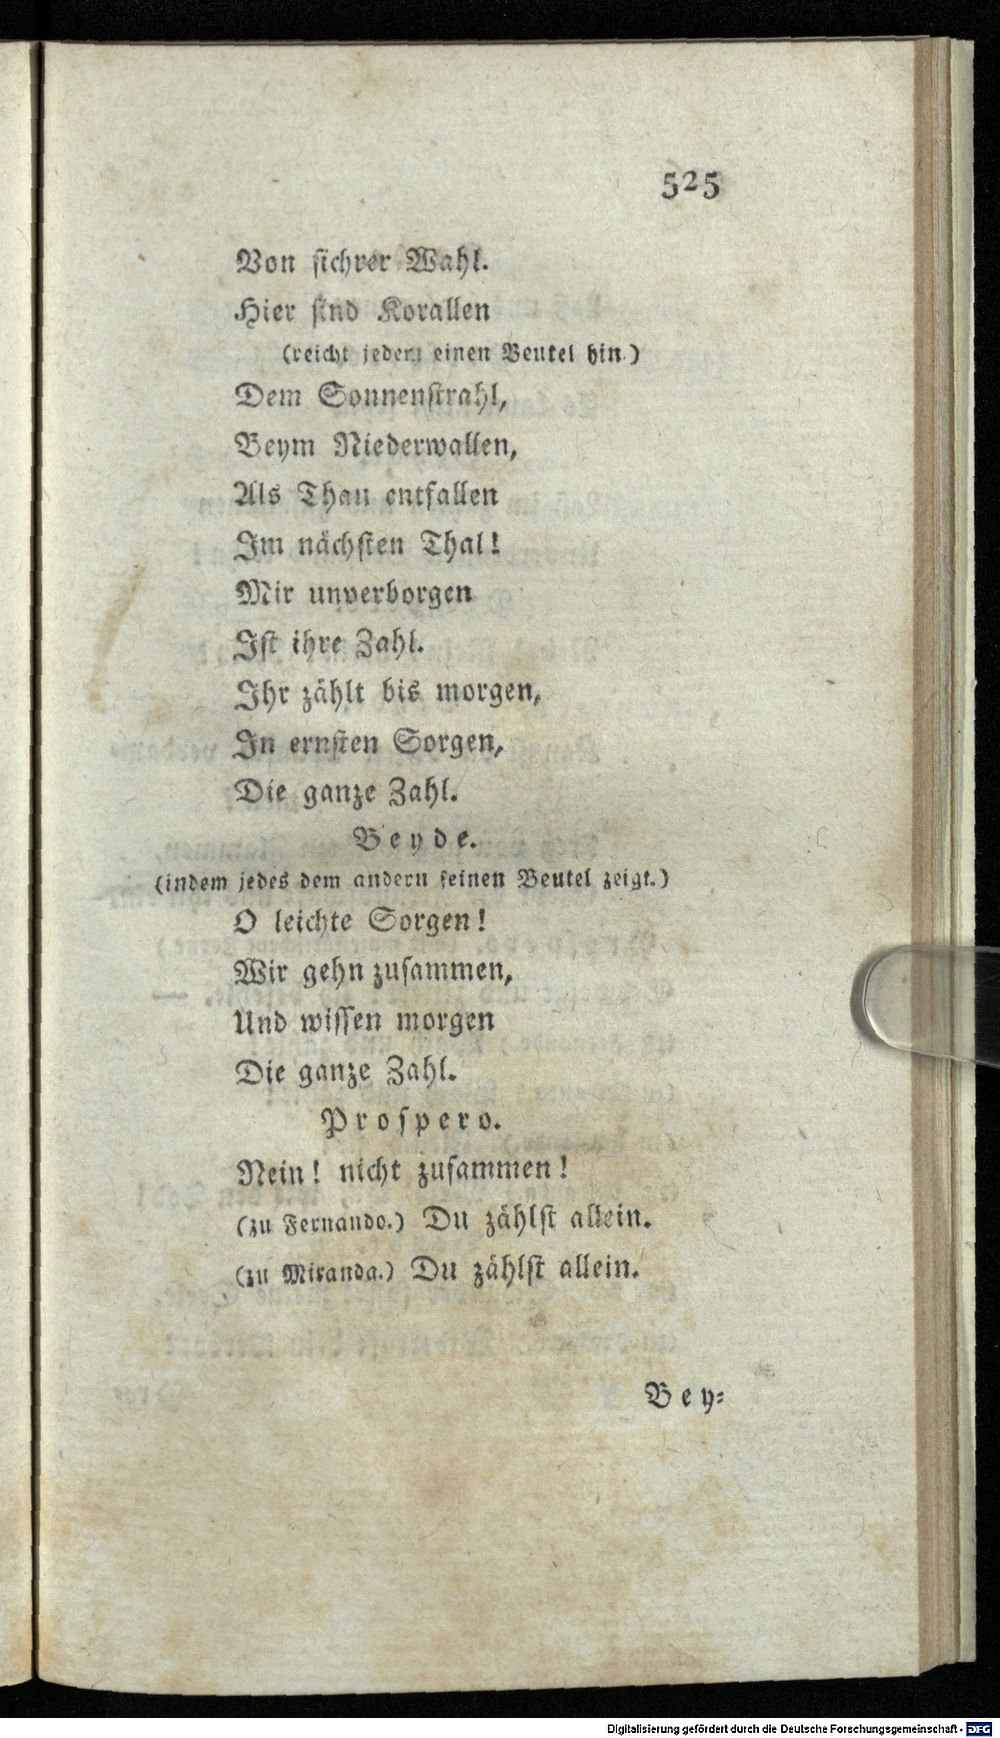 525
Von sichrer Wahl.
Hier sind Korallen
(reicht jedem einen Beutel hin.)
Dem Sonnenstrahl,
Beym Niederwallen,
Als Thau entfallen
Im nächsten Thal!
Mir unverborgen
Ist ihre Zahl.
Ihr zählt bis morgen,
In ernsten Sorgen,
Die ganze Zahl.
Beyde.
(indem jedes dem andern seinen Beutel zeigt.)
O leichte Sorgen!
Wir gehn zusammen,
Und wissen morgen
Die ganze Zahl.
Prospero.
Nein! nicht zusammen!
(zu Fernando.) Du zählst allein.
(zu Miranda.) Du zählst allein.
Bey-
Digitalisierung gefördert durch die Deutsche Forschungsgemeinschaft - DFG